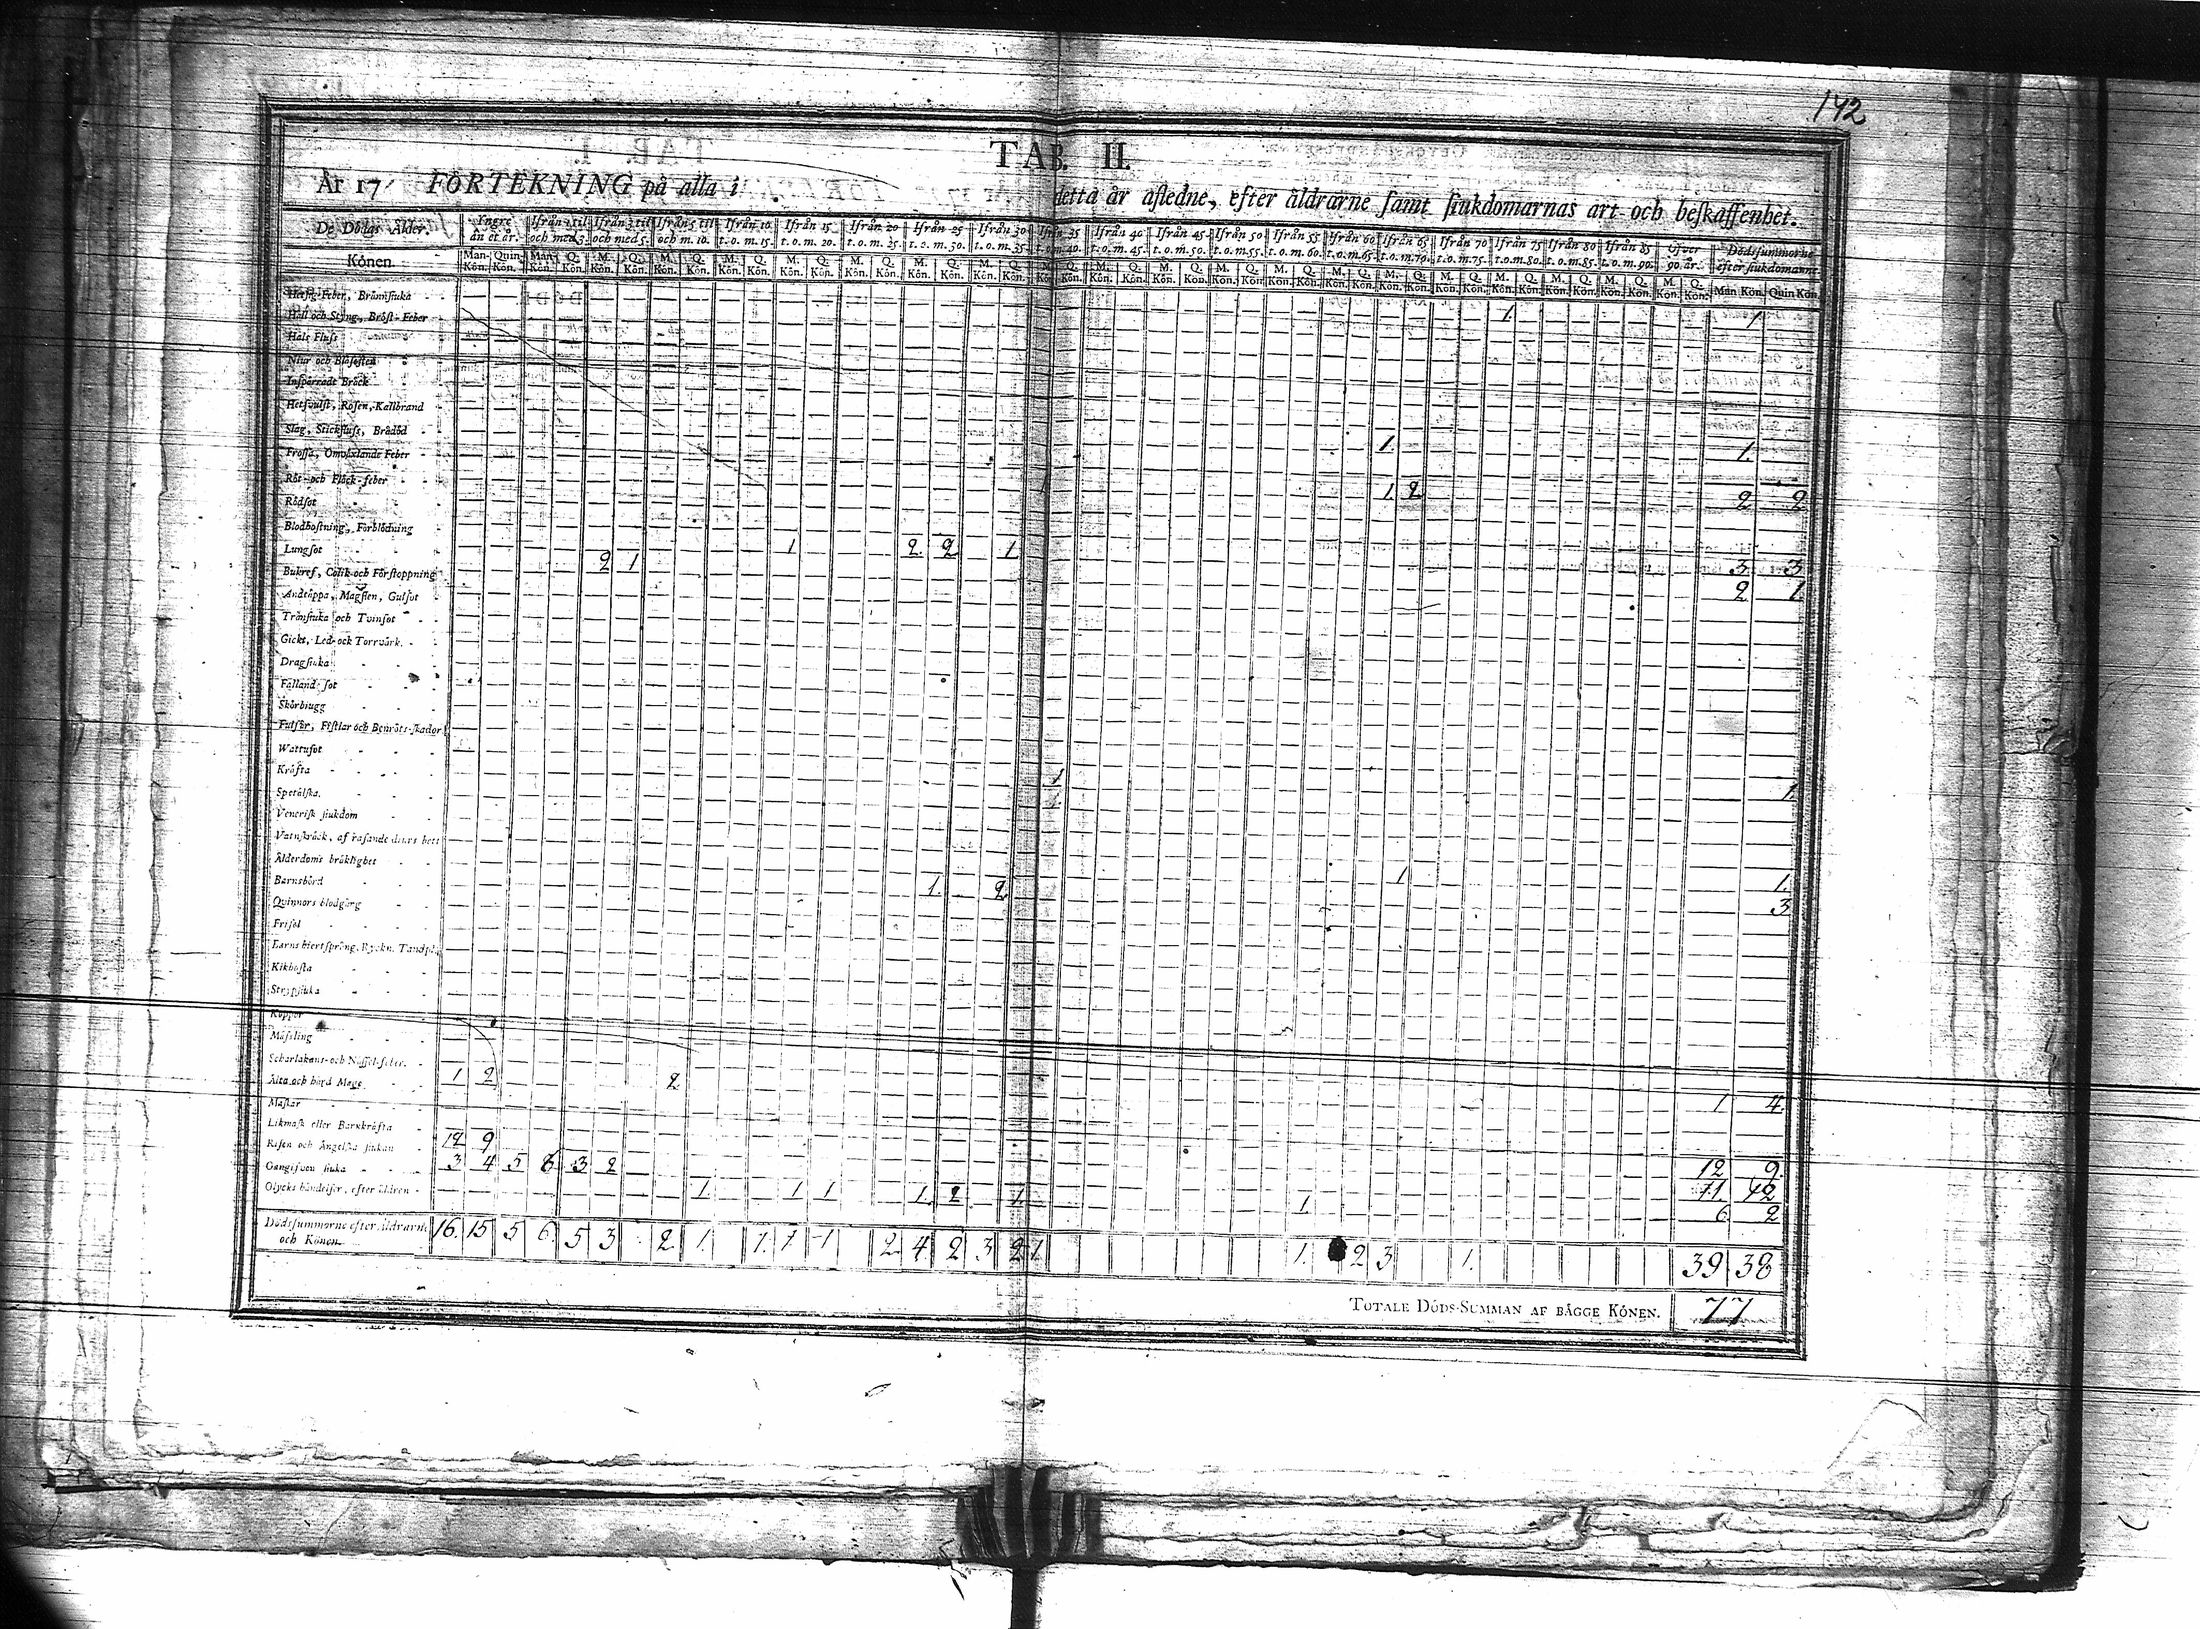 142
TAB. II.
År 17 FÖRTEKNING på alla i detta år afledne, efter åldrarne samt siukdomarnas art och beskaffenhet.
De Dödas Ålder. Yngre än et år. Ifrån 1 til och med 3. Ifrån 3 til och med 5. Ifrån 5 til och m. 10. Ifrån 10 t. o. m. 15. Ifrån 15 t. o. m. 20. Ifrån 20 t. o. m. 25. Ifrån 25 t. o. m. 30. Ifrån 30 t. o. m. 35. Ifrån 35 t. o. m. 40. Ifrån 40 t. o. m. 45. Ifrån 45 t. o. m. 50. Ifrån 50 t. o. m. 55. Ifrån 55 t. o. m. 60. Ifrån 60 t. o. m. 65. Ifrån 65 t. o. m. 70. Ifrån 70 t. o. m. 75. Ifrån 75 t. o. m. 80. Ifrån 80 t. o. m. 85. Ifrån 85 t. o. m. 90. Öfver 90 år. Dödssummorne efter siukdomarne.
Könen Man-Kön. Quin-Kön. Man-Kön. Q. Kön. M. Kön. Q. Kön. M. Kön. Q. Kön. Man Kön. Quin Kön.
Hetsig-Feber, Brännsiuka
Håll och Styng, Bröst-Feber 1 1
Hals Fluss
Niur och Blåsesten
Inspärradt Bräck
Hetsvulst, Rosen, Kallbrand
Slag, Stickfluss, Brådöd 1. 1.
Frossa, Omväxlande Feber
Röt- och Fläck-feber 1 1. 2 2 2
Rödsot
Blodhostning, Förblödning
Lungsot 1 2. 2 1 3 3
Bukref, Colik och Förstoppning 2 1 2 1
Andtäppa, Magsten, Gulsot
Trånsiuka och Tvinsot
Gickt, Led- ock Torrvärk.
Dragsiuka
Falland-sot
Skörbiugg
Fulsår, Fistlar och Benröts-skador
Wattusot
Kräfta 1 1.
Spetälska.
Venerisk siukdom
Vatnskräck, af rasande diurs bett
Ålderdoms bräklighet 1 1.
Barnsbörd 1. 2 3
Qvinnors blodgång
Frisel
Barns hiertspräng, Ryckn.
Kikhosta
Strypsiuka
Koppor
Mässling
Scharlakans- och Nässel-feber.
Älta och hård Mage 1 2 2 1 4.
Maskar
Likmask eller Barnkräfta
Risen och Ängelska siukan 12 9 12 9.
Gångse siuka 3 4 5 6 3 2 11
Olycks händelser, efter åldren 1. 1 1 1. 2 1. 1. 6 2
Dödssummorne efter åldrarne och Könen 16. 15 5 6 5 3 2 1. 1. 1 1 2 4 2 3 2 1 1. 2 3 1. 39 38
TOTALE DÖDS-SUMMAN AF BÄGGE KÖNEN. 77